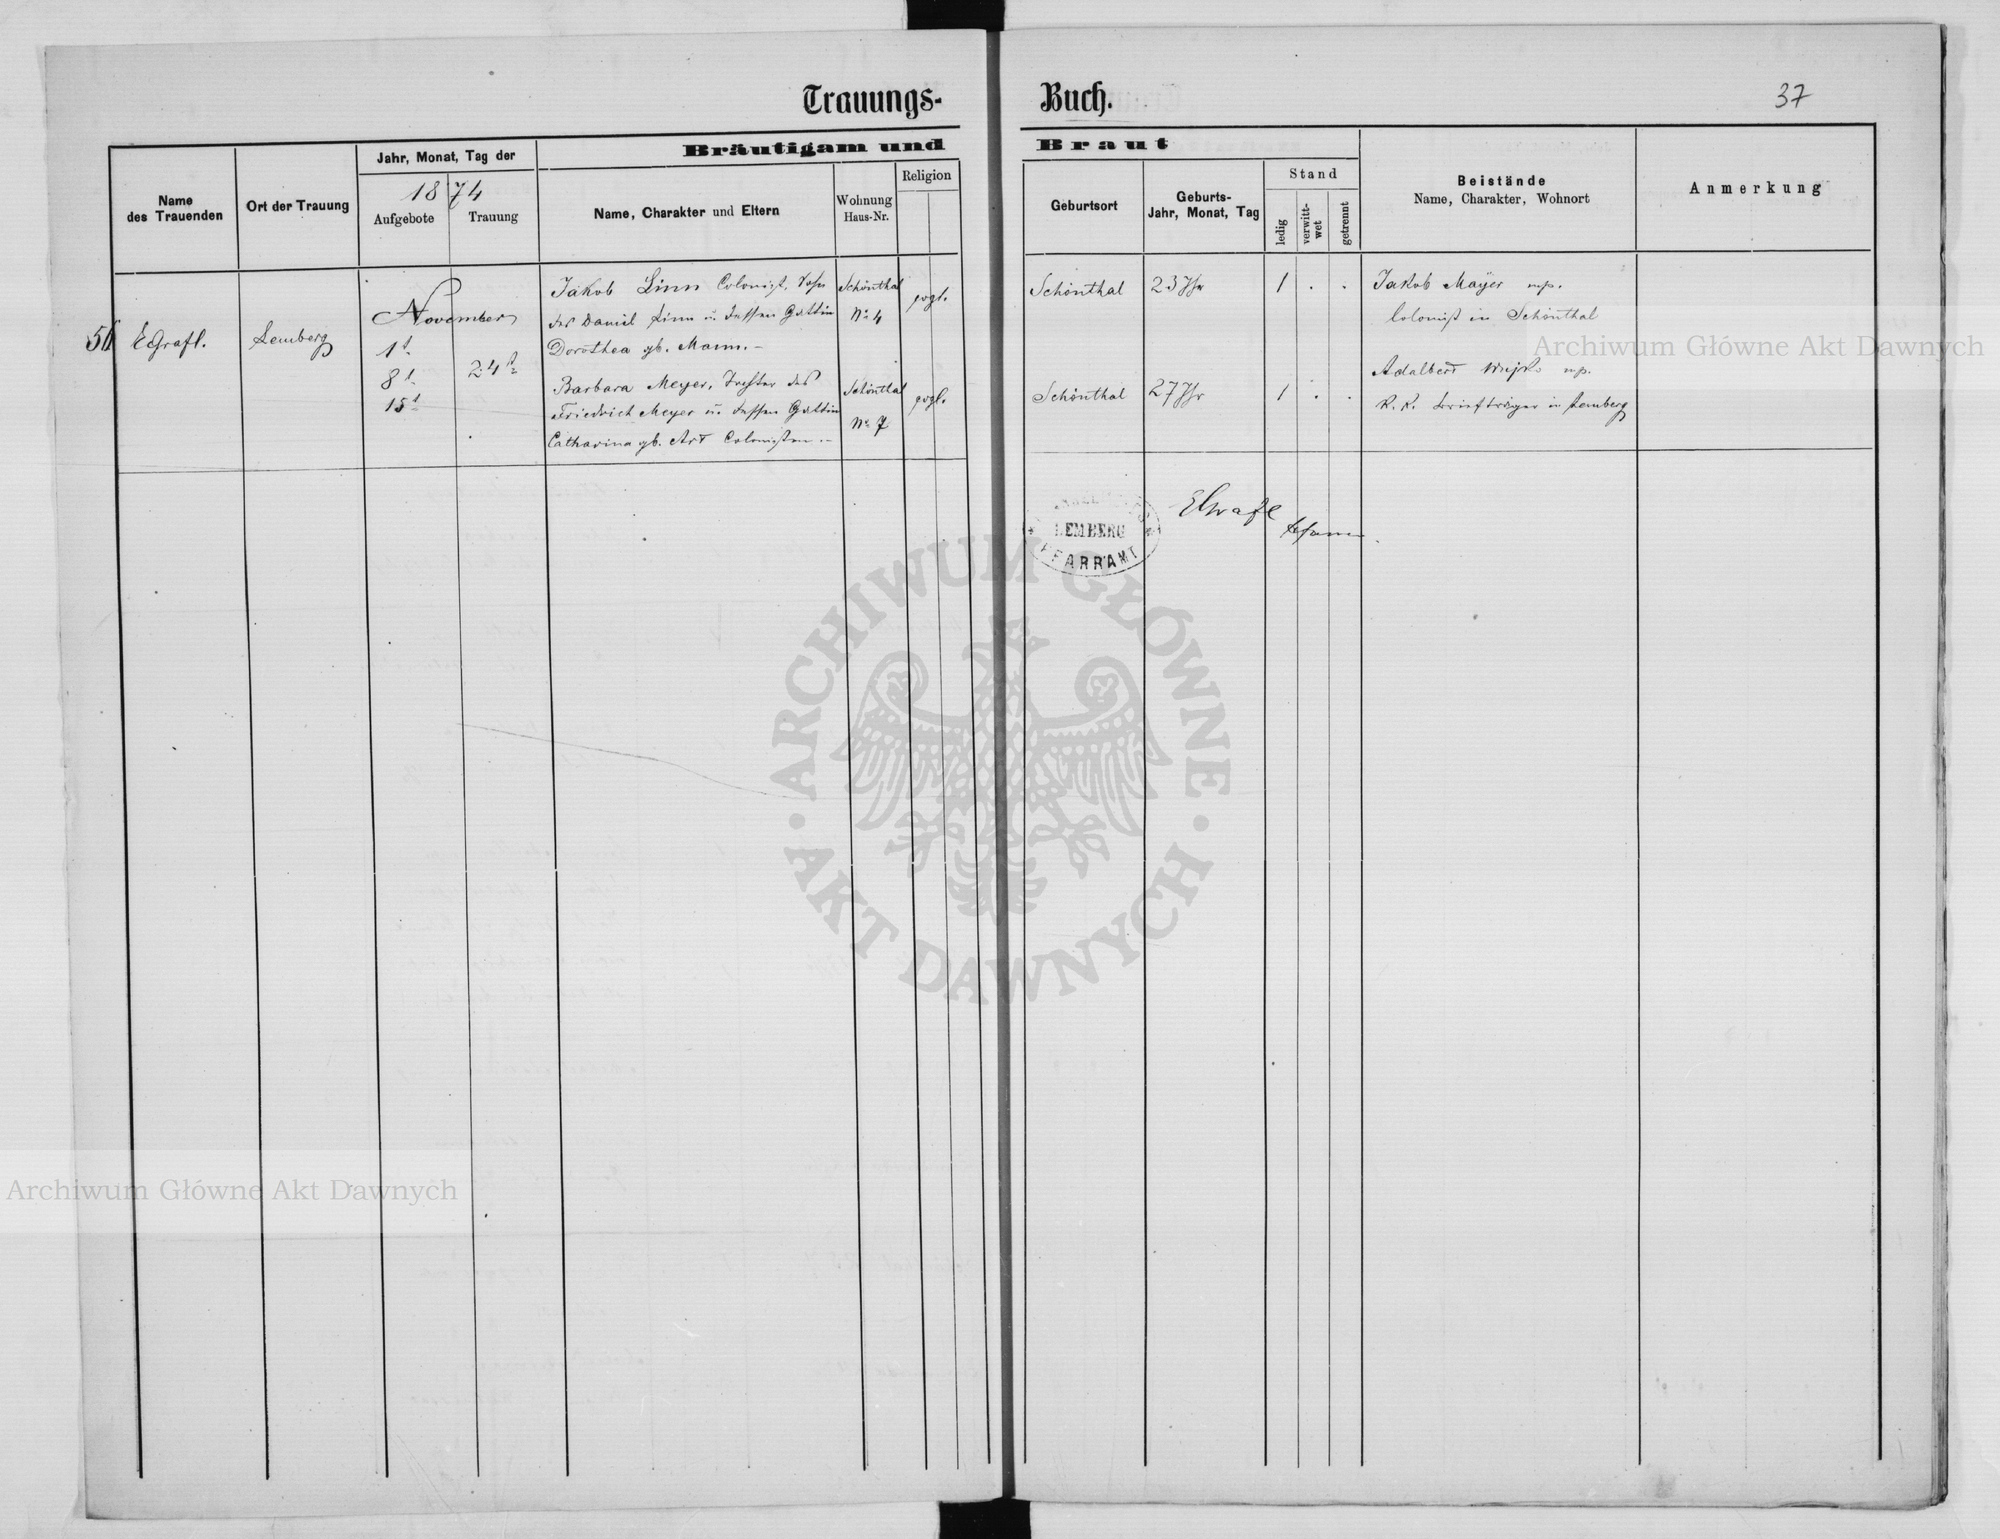 Trauungs-
Buch.
37
Name
des Trauenden
Ort der Trauung
Jahr, Monat, Tag der
1874
Aufgebote
Trauung
Bräutigam und
Name, Charakter und Eltern
Wohnung
Haus-Nr.
Religion
Braut
Geburtsort
Geburts-
Jahr, Monat, Tag
Stand
ledig
verwitt-
wet
getrennt
Beistände
Name, Charakter, Wohnort
Anmerkung
56
EGrafl.
Lemberg
November
1t
8t
15t
24t
Jakob Linn Colonist, Sohn
des Daniel Linn u. dessen Gattin
Dorothea gb. Mann.-
Schönthal
No 4
evgl.
Barbara Meyer, Tochter des
Friedrich Meyer u. dessen Gattin
Catharina gb. Art Colonisten.-
Schönthal
No 7
evgl.
Schönthal
23 Jhr
1 . .
Jakob Mayer mp.
Colonist in Schönthal
Schönthal
27 Jhr
1 . .
Adalbert mp.
K. K. Briefträger in Lemberg
LEMBERG
PFARRAMT
EGrafl
Archiwum Główne Akt Dawnych
ARCHIWUM GŁÓWNE
AKT DAWNYCH
Archiwum Główne Akt Dawnych